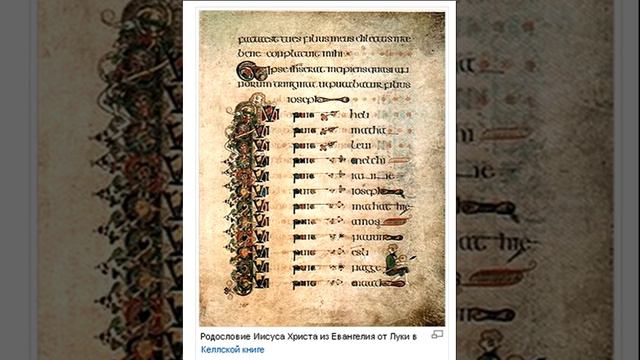 factaest tu es filius meus dilectus in te
bene conplacuit mihi
Et ipse ihs erat incipiens quasi an
norum triginta ut putabatur filius
ioseph
QUI fuit heli
QUI fuit matha
QUI fuit leui
QUI fuit melchi
QUI fuit
QUI fuit ioseph
QUI fuit mathathie
QUI fuit amos
QUI fuit
QUI fuit esli
QUI fuit nagge
QUI fuit maath
Родословие Иисуса Христа из Евангелия от Луки в
Келлской книге